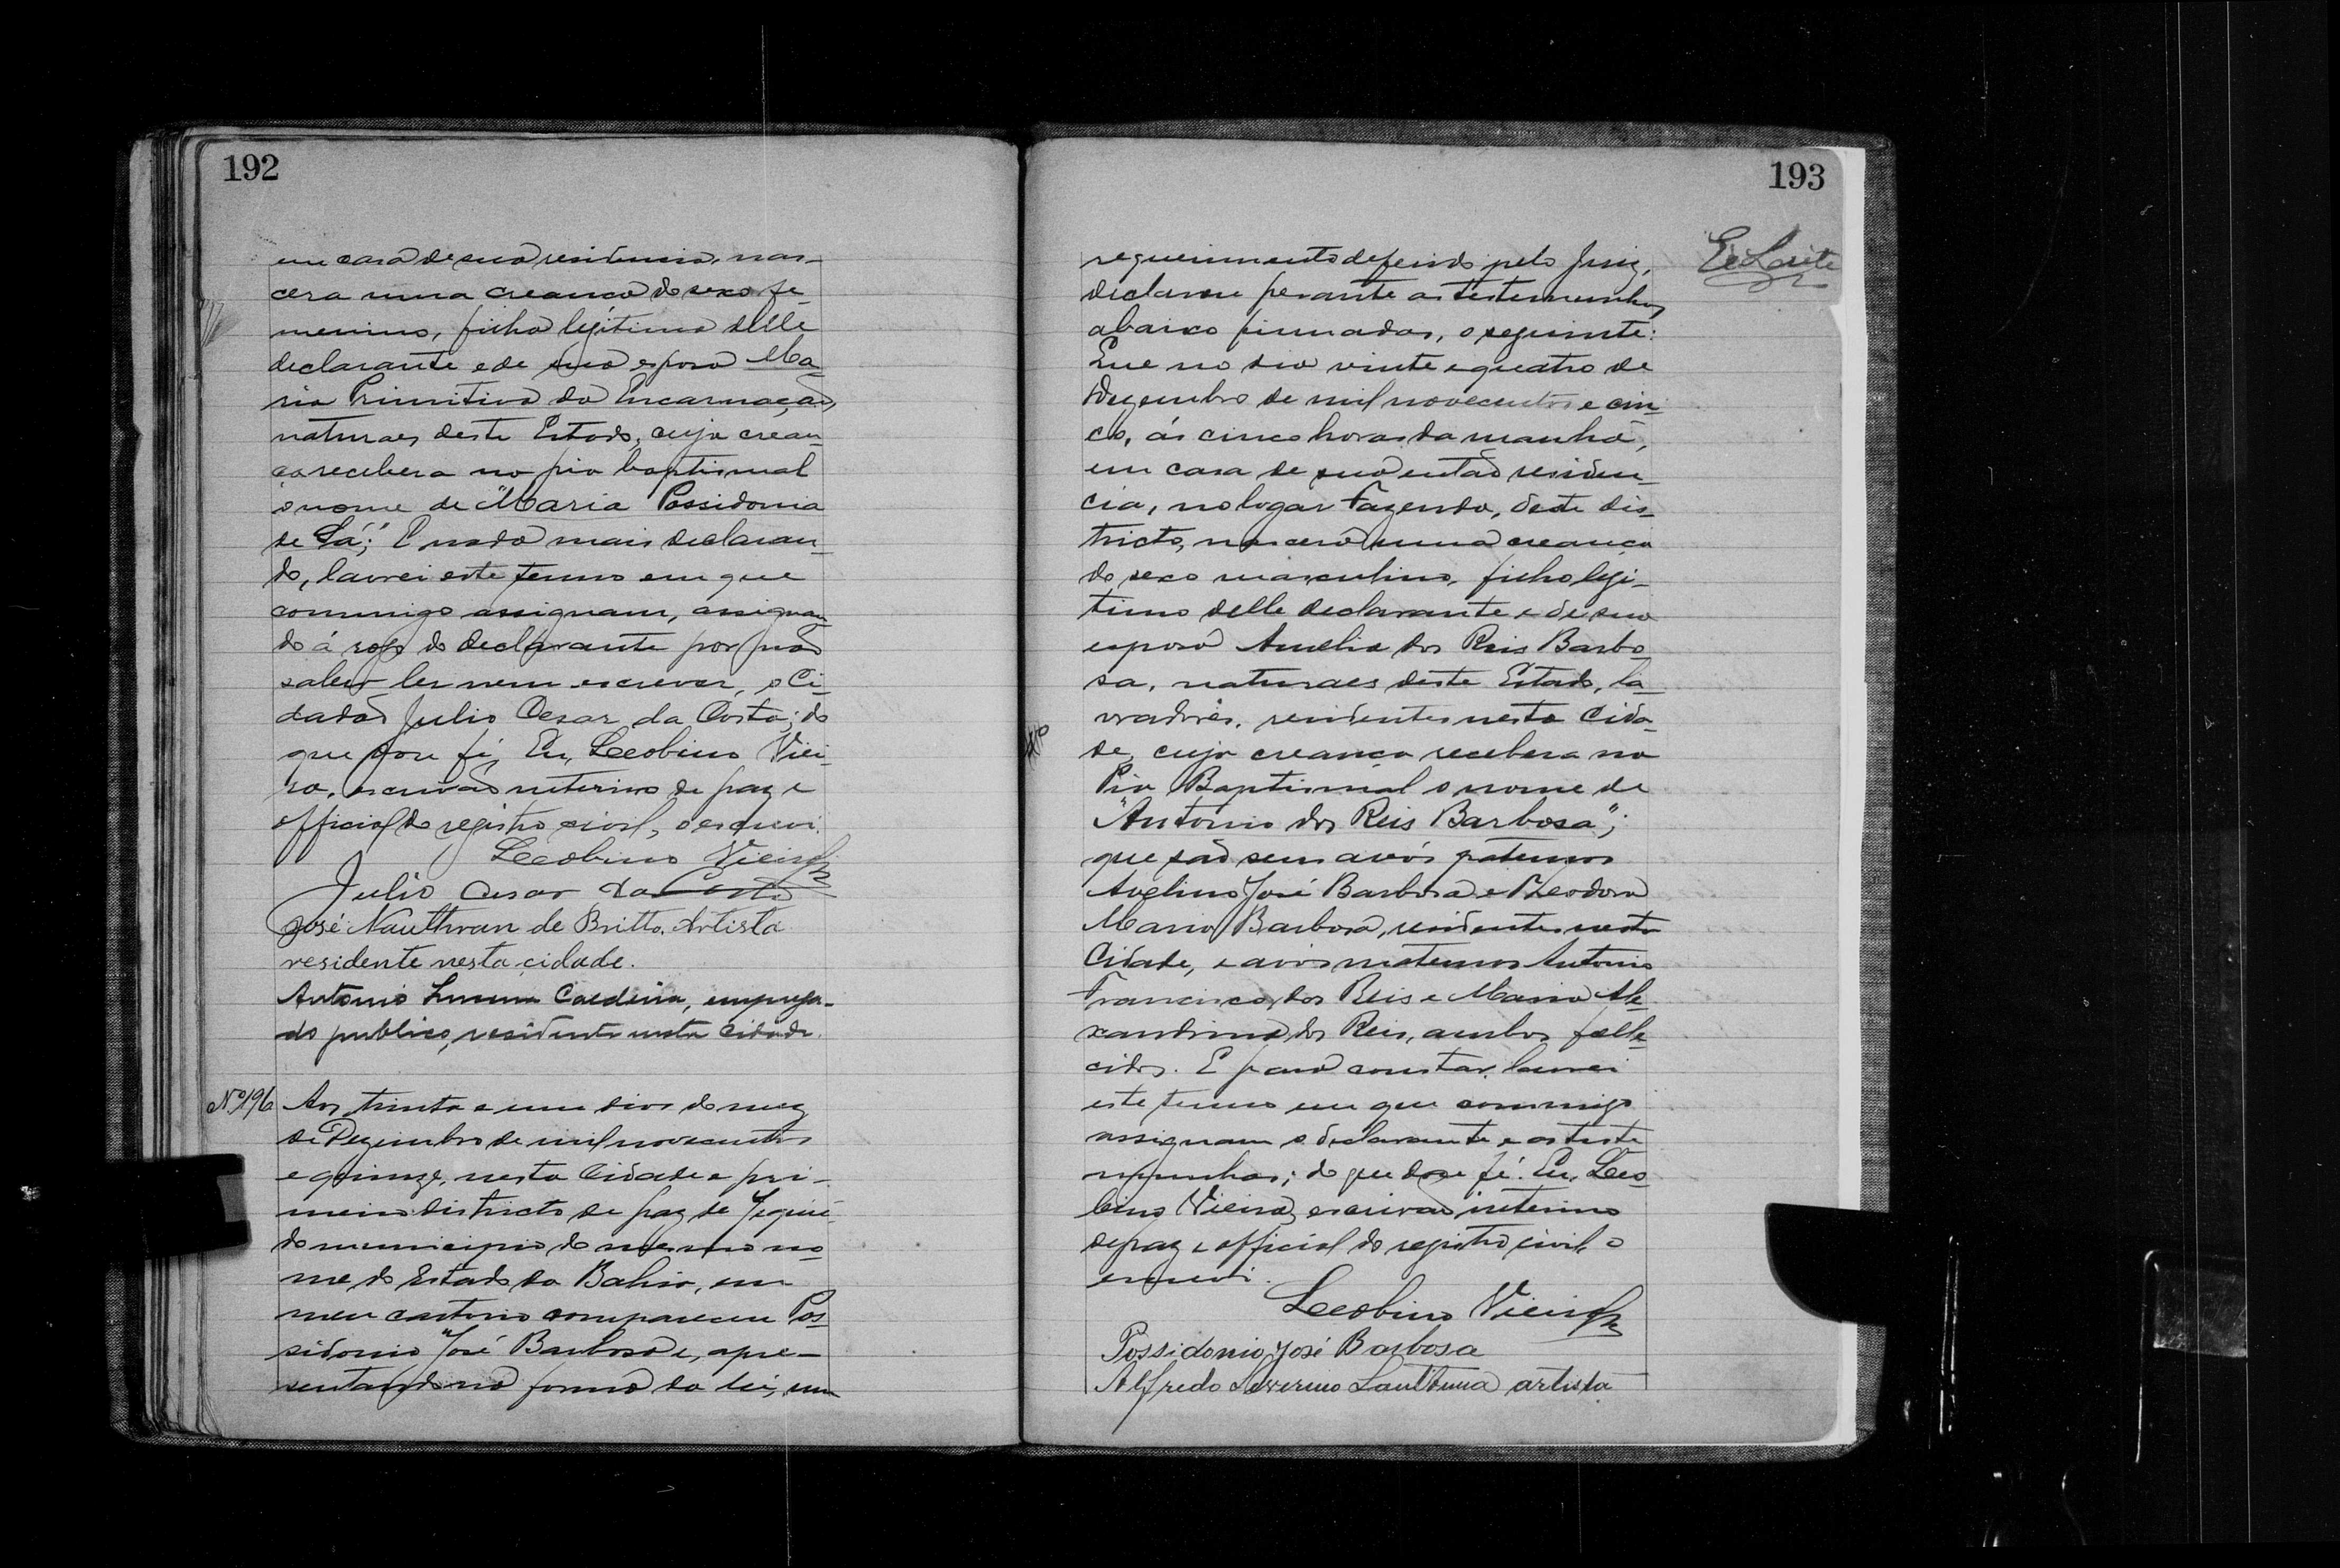 192
em casa de sua residencia, nas-
cera uma creança do sexo fe-
menino, filha legitima delle
declarante e de sua esposa Ma-
ria Primitiva da Encarnação,
naturaes deste Estado, cuja crean-
ça recebera na pia baptismal
o nome de "Maria Possidonia
de Sá"; E nada mais declaran-
do, lavrei este termo em que
commigo assignam, assignan-
do á rogo do declarante por não
saber ler nem escrever, o Ci-
dadão Julio Cesar da Costa; do
que dou fé, Eu, Leobino Viei-
ra, escrivão interino de paz e
official do registro civil, o escrevi.
Leobino Vieira
Julio Cesar da Costa
José de Britto. Artista
residente nesta cidade.
Antonio Caldeira, emprega-
do publico, residente nesta cidade.
Nº 196
Aos trinta e um dias do mez
de Dezembro de mil novecentos
e quinze, nesta Cidade e pri-
meiro districto de paz de Jequié
do municipio do mesmo no-
me do Estado da Bahia, em
meu cartorio compareceu Pos-
sidonio José Barbosa e, apre-
sentando na forma da lei, um
193
requerimento deferido pelo Juiz,
declarou perante as testemunhas
abaixo firmadas, o seguinte:
Que no dia vinte e quatro de
Dezembro de mil novecentos e cin-
co, ás cinco horas da manhã,
em casa de sua então residen-
cia, no logar Fazenda, deste dis-
tricto, nascera uma creança
do sexo masculino, filho legi-
timo delle declarante e de sua
esposa Amelia dos Reis Barbo-
sa, naturaes deste Estado, la-
vradores, residentes nesta Cida-
de, cuja creança recebera na
Pia Baptismal o nome de
"Antonio dos Reis Barbosa";
que são seus avós paternos
Avelino José Barbosa e Theodora
Maria Barbosa, residentes nesta
Cidade, e avós maternos Antonio
Francisco dos Reis e Maria Ale-
xandrina dos Reis, ambos falle-
cidos. E para constar, lavrei
este termo em que commigo
assignam o declarante e as teste-
munhas; do que dou fé. Eu, Leo-
bino Vieira, escrivão interino
de paz e official do registro civil, o
escrevi.
Leobino Vieira
Possidonio José Barbosa
Alfredo Severino artista